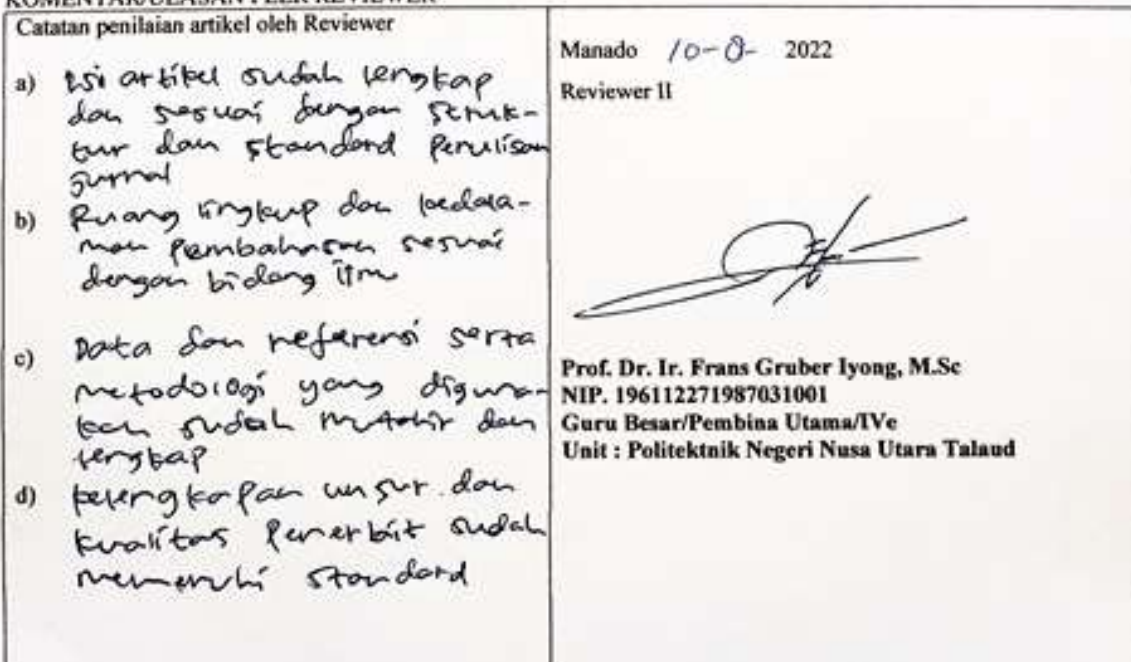 KOMENTAR/ULASAN PEER REVIEWER
Catatan penilaian artikel oleh Reviewer
a) Isi artikel sudah lengkap
dan sesuai dengan struk-
tur dan standard Penulisan
jurnal
b) Ruang lingkup dan kedala-
man Pembahasan sesuai
dengan bidang ilmu
c) Data dan referensi serta
metodologi yang diguna-
kan sudah mutahir dan
lengkap
d) kelengkapan unsur dan
kualitas Penerbit sudah
memenuhi standard
Manado 10- 2022
Reviewer II
Prof. Dr. Ir. Frans Gruber Iyong, M.Sc
NIP. 196112271987031001
Guru Besar/Pembina Utama/IVe
Unit : Politektnik Negeri Nusa Utara Talaud